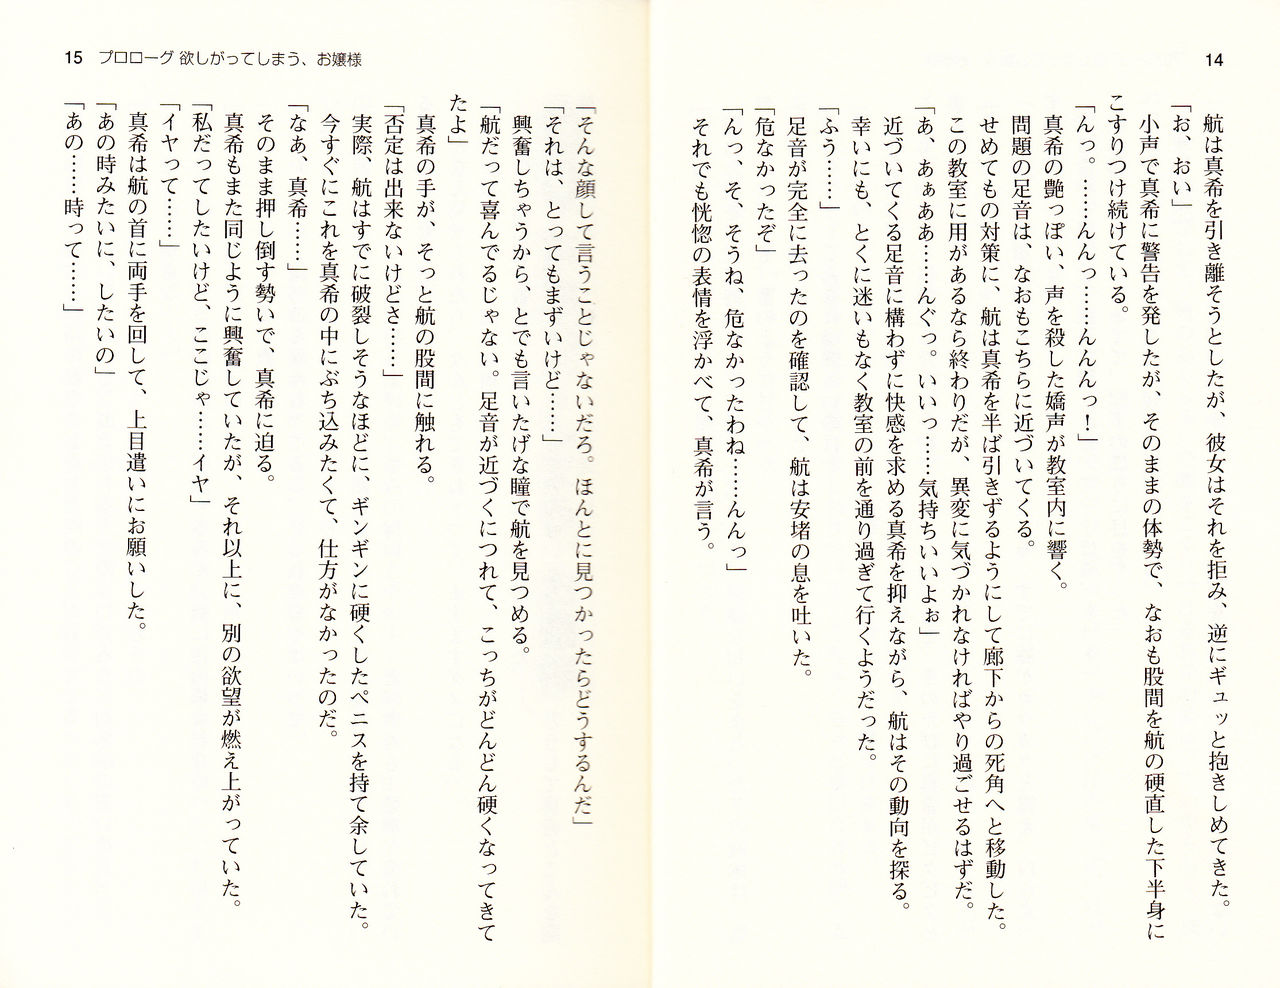 14
航は真希を引き離そうとしたが、彼女はそれを拒み、逆にギュッと抱きしめてきた。
「お、おい」
小声で真希に警告を発したが、そのままの体勢で、なおも股間を航の硬直した下半身に
こすりつけ続けている。
「んっ。……んんっ……んんんっ！」
真希の艶っぽい、声を殺した嬌声が教室内に響く。
問題の足音は、なおもこちらに近づいてくる。
せめてもの対策に、航は真希を半ば引きずるようにして廊下からの死角へと移動した。
この教室に用があるなら終わりだが、異変に気づかれなければやり過ごせるはずだ。
「あ、あぁああ……んぐっ。いいっ……気持ちいいよぉ」
近づいてくる足音に構わずに快感を求める真希を抑えながら、航はその動向を探る。
幸いにも、とくに迷いもなく教室の前を通り過ぎて行くようだった。
「ふう……」
足音が完全に去ったのを確認して、航は安堵の息を吐いた。
「危なかったぞ」
「んっ、そ、そうね、危なかったわね……んんっ」
それでも恍惚の表情を浮かべて、真希が言う。
15 プロローグ 欲しがってしまう、お嬢様
「そんな顔して言うことじゃないだろ。ほんとに見つかったらどうするんだ」
「それは、とってもまずいけど……」
興奮しちゃうから、とでも言いたげな瞳で航を見つめる。
「航だって喜んでるじゃない。足音が近づくにつれて、こっちがどんどん硬くなってきて
たよ」
真希の手が、そっと航の股間に触れる。
「否定は出来ないけどさ……」
実際、航はすでに破裂しそうなほどに、ギンギンに硬くしたペニスを持て余していた。
今すぐにこれを真希の中にぶち込みたくて、仕方がなかったのだ。
「なあ、真希……」
そのまま押し倒す勢いで、真希に迫る。
「私だってしたいけど、ここじゃ……イヤ」
「イヤって……」
真希もまた同じように興奮していたが、それ以上に、別の欲望が燃え上がっていた。
真希は航の首に両手を回して、上目遣いにお願いした。
「あの時みたいに、したいの」
「あの……時って……」